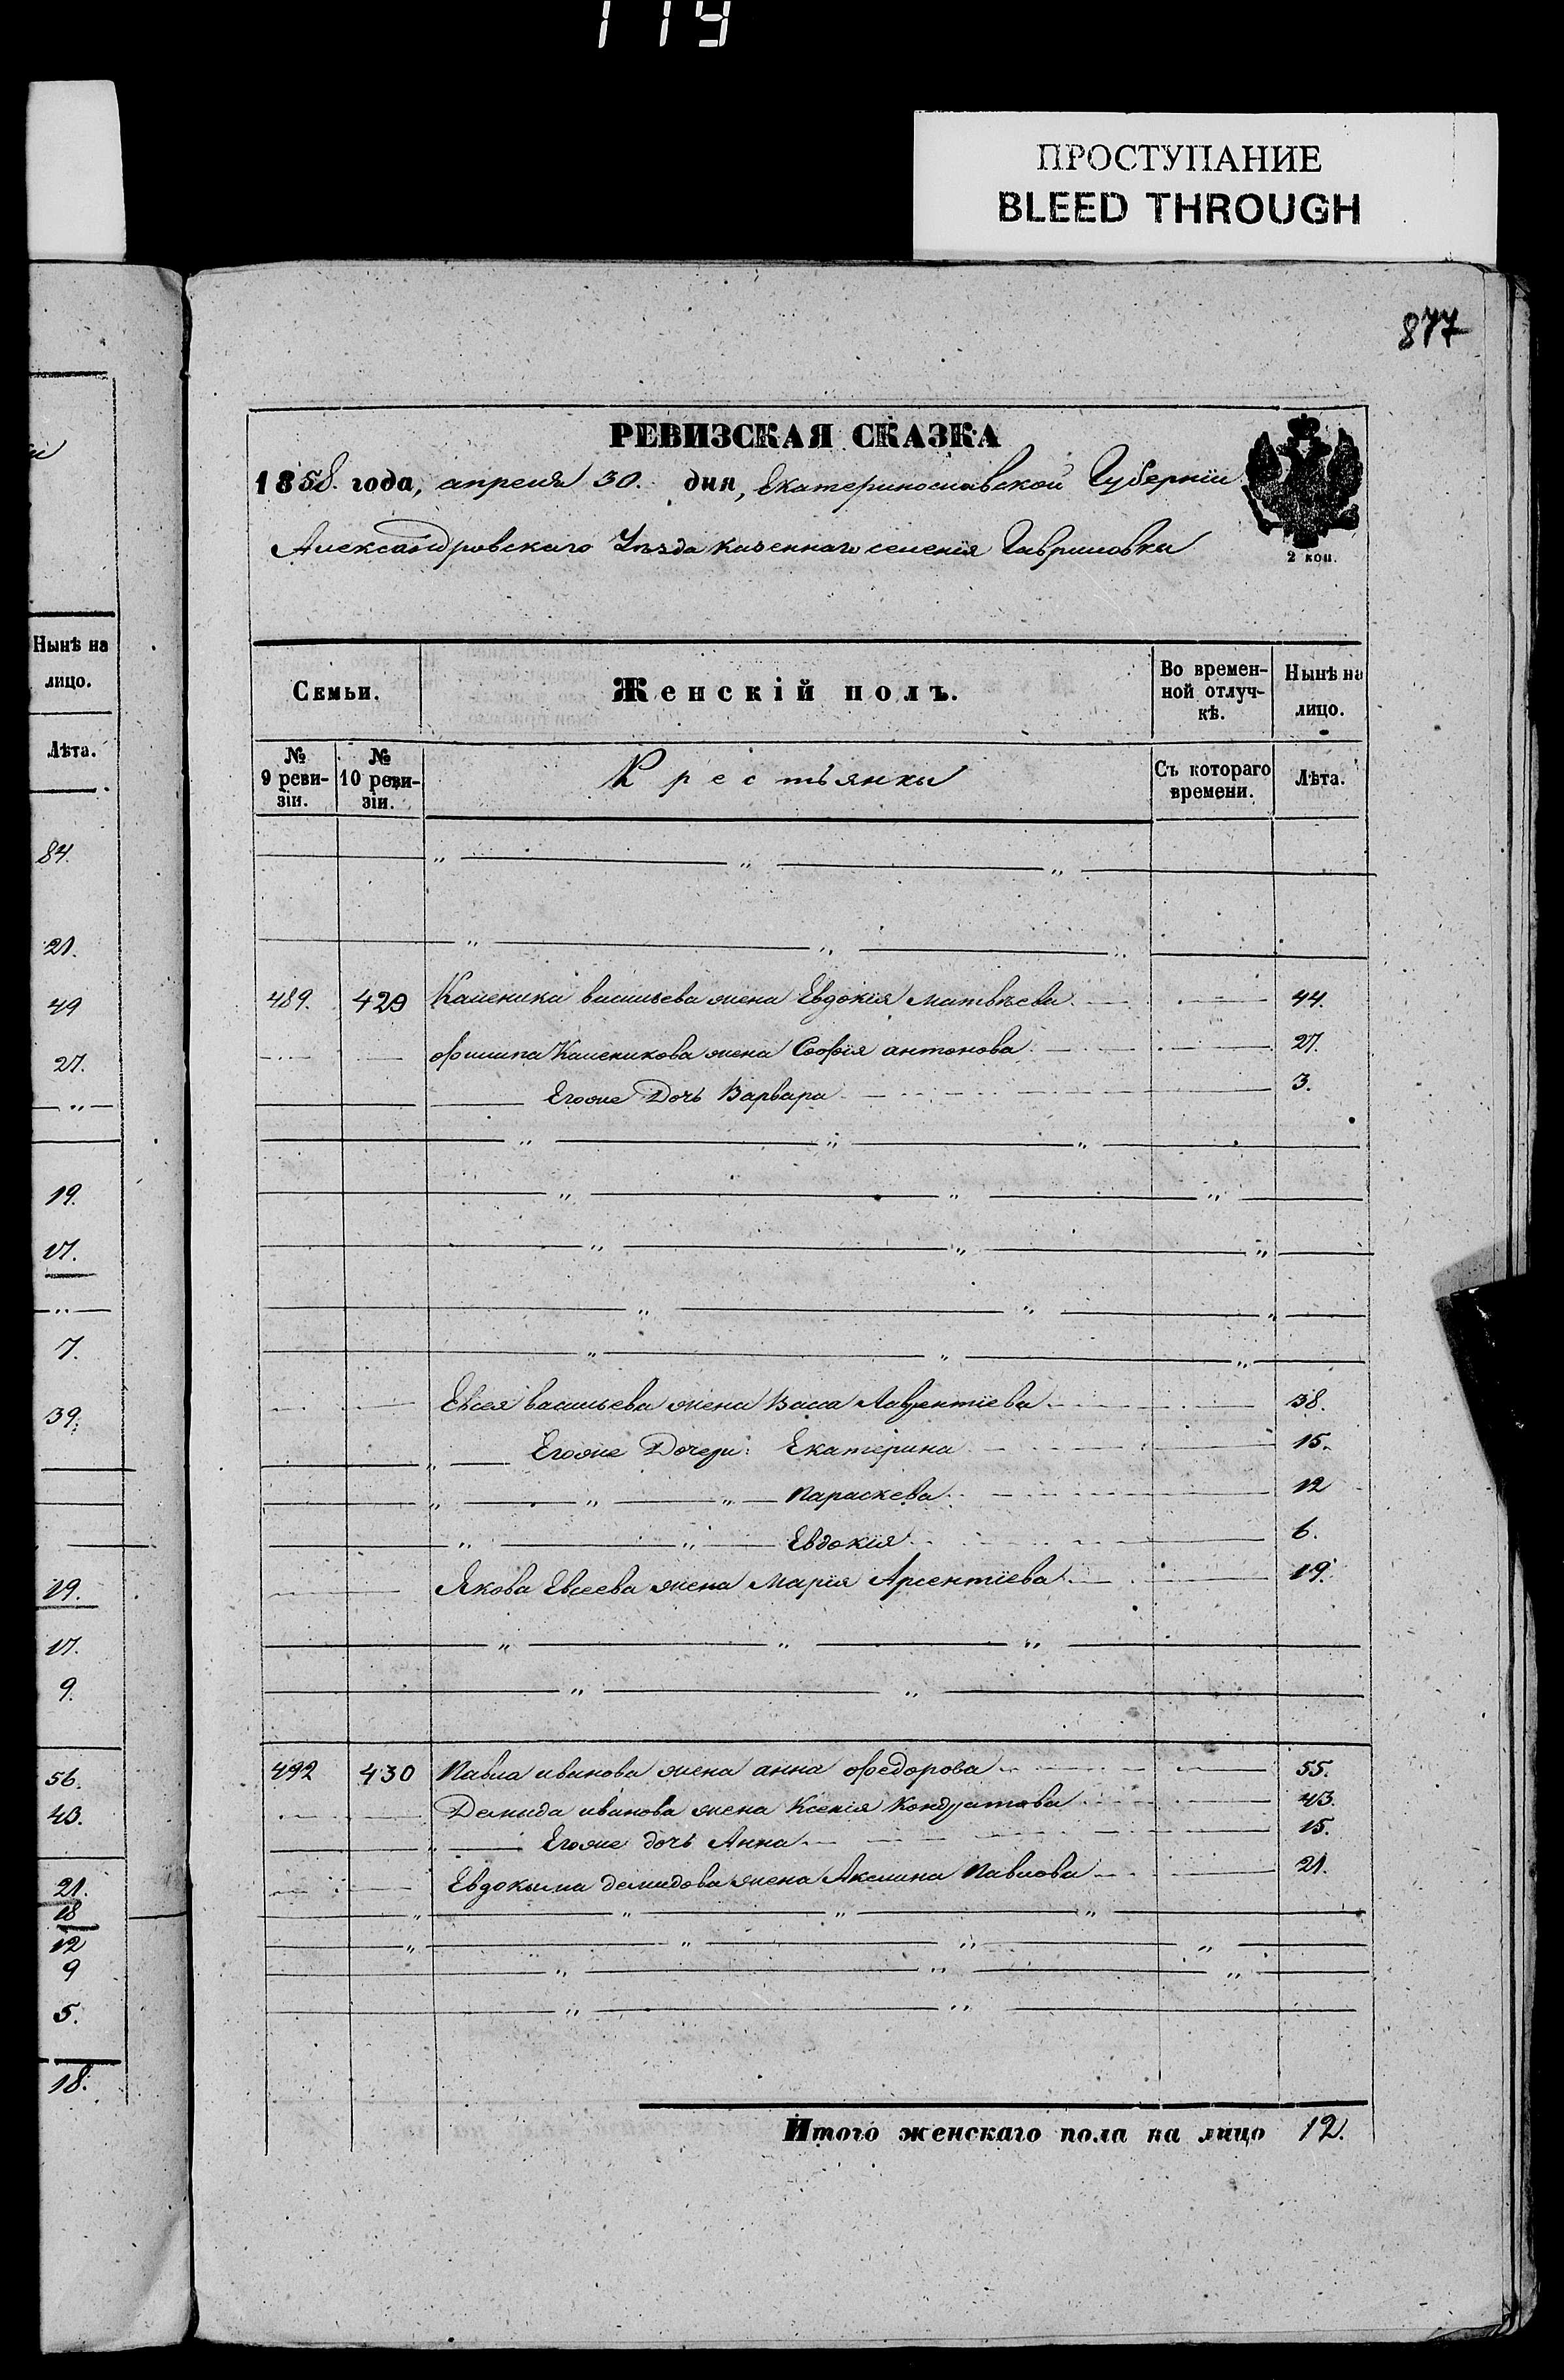 119
ПРОСТУПАНИЕ
BLEED THROUGH
877
РЕВИЗСКАЯ СКАЗКА
1858. года, апреля 30. дня, Екатеринославской Губерніи
Александровскаго Уѣзда казеннаго селенія Гавриловки
2 коп.
Нынѣ на лицо.
Лѣта.
84.
21.
49
27.
19.
17.
7.
39.
19.
17.
9.
56.
43.
21.
18
12
9
5.
18.
Семьи. Женскій полъ. Во времен-ной отлуч-кѣ. Нынѣ на лицо.
№ 9 реви-зіи. № 10 реви-зіи. Крестьянки Съ котораго времени. Лѣта.
489. 429 Калениka васильева жена Евдокія матвѣева 44.
филипа Каленикова жена Софія антонова 27.
Егоже Дочь Варвара 3.
Евсея васильева жена Васса Лаврентіева 38.
Егоже Дочери: Екатерина 15.
Параскева 12
Евдокія 6.
Якова Евсеева жена Марія Арсентіева 19.
492 430 Павла иванова жена анна федорова 55.
Демида иванова жена Ксенія Кондратова 43.
Егоже дочь Анна 15.
Евдокима демидова жена Акилина Павлова 21.
Итого женскаго пола на лицо 12.